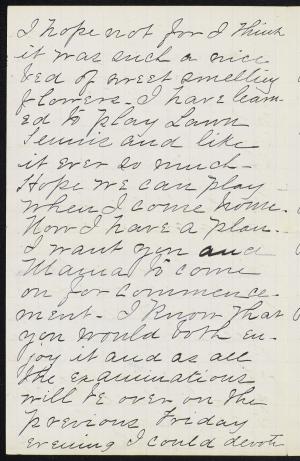 I hope not for I think
it was such a nice
bed of sweet smelling
flowers - I have learn-
ed to play Lawn
Tennis and like
it ever so much -
Hope we can play
when I come home.
Now I have a plan.
I want you and
Mama to come
on for commence-
ment - I know that
you would both en-
joy it and as all
the examinations
will be over on the
previous Friday
evening I could devote